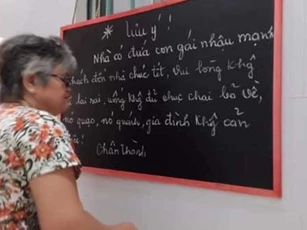 * Lưu ý !!
Nhà có đứa con gái nhậu mạnh
khách đến nhà chúc tết, vui lòng khg
lai rai, uống khg đủ chục chai bả về,
nó quạo, nó quánh, gia đình khg cản
Chân thành